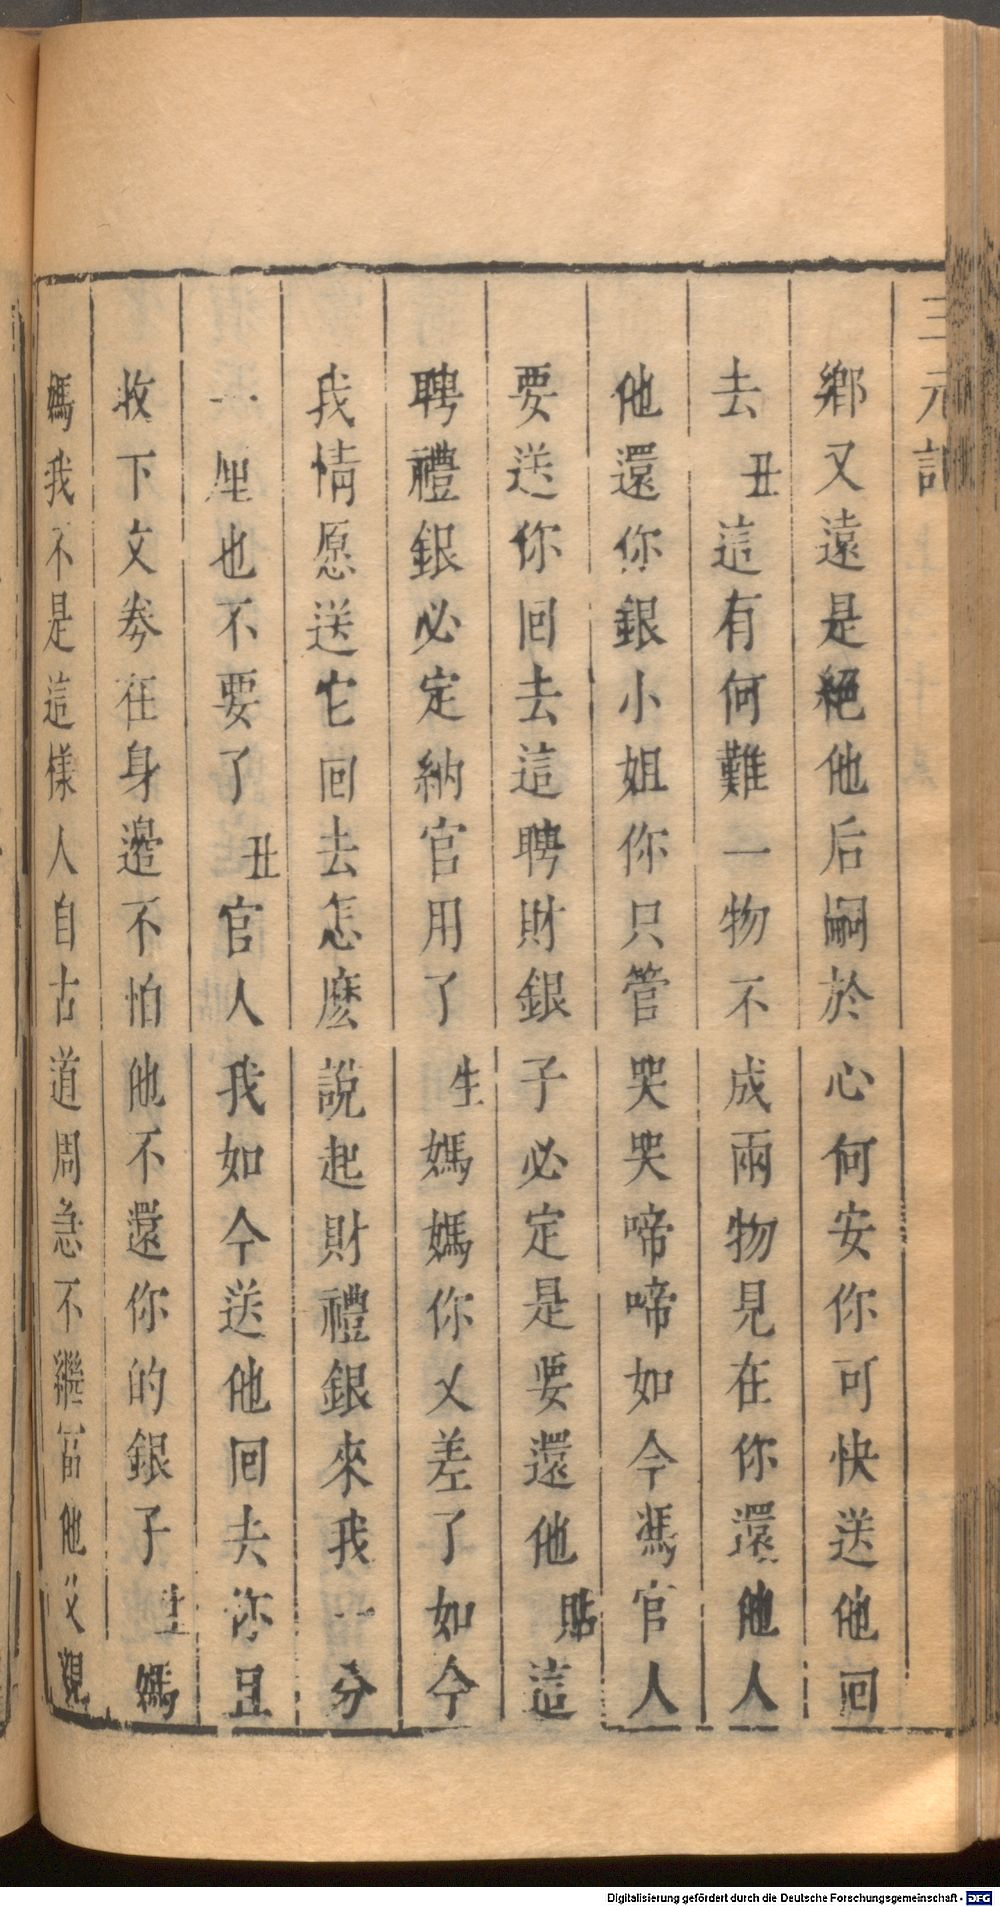 三元記
鄉又遠是絕他后嗣於心何安你可快送他回
去丑這有何難一物不成兩物見在你還他人
他還你銀小姐你只管哭哭啼啼如今馮官人
要送你回去這聘財銀子必定是要還他貼這
聘禮銀必定納官用了生媽媽你乂差了如今
我情愿送它回去怎麽說起財禮銀來我一分
一厘也不要了丑官人我如今送他回去你且
收下文劵在身邉不怕他不還你的銀子生媽
媽我不是這樣人自古道周急不繼富他父親
Digitalisierung gefördert durch die Deutsche Forschungsgemeinschaft - DFG